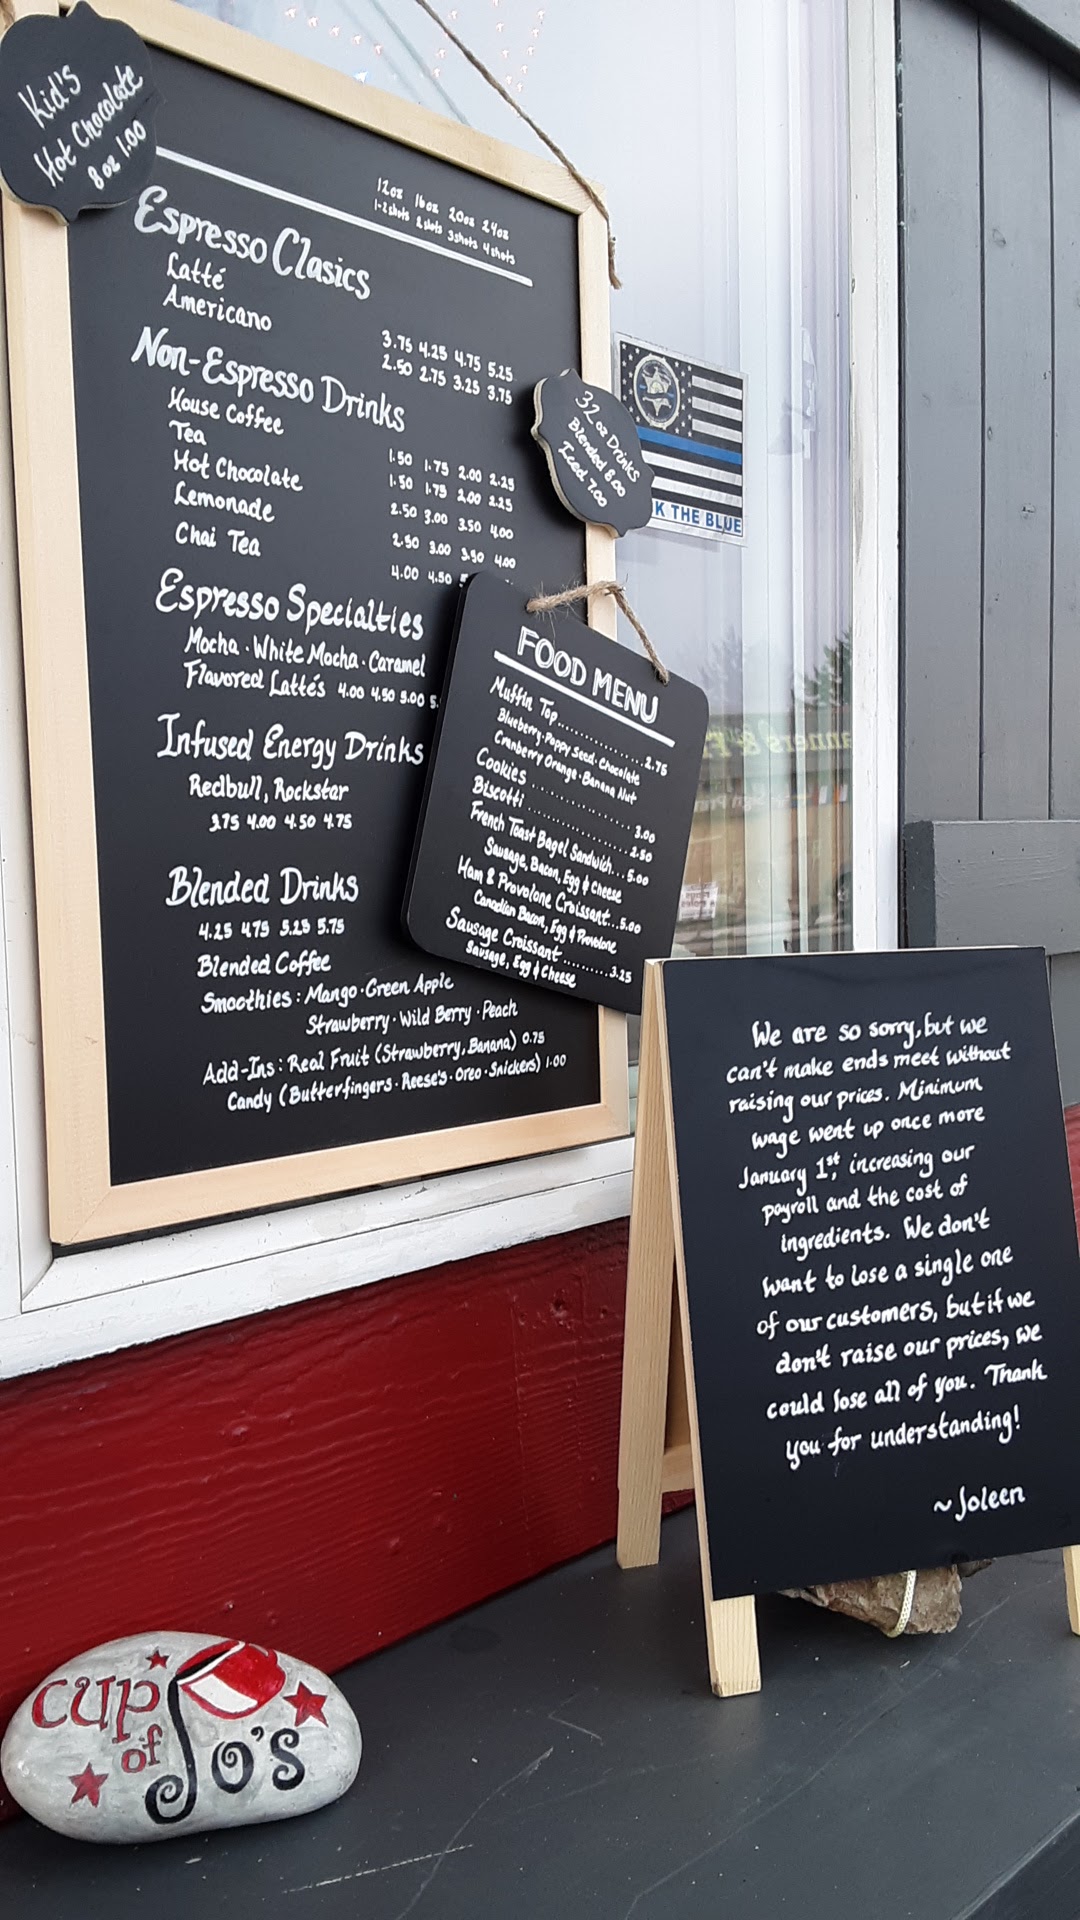 Kid's
Hot Chocolate
8 oz 1.00
12oz 16oz 20oz 24oz
1-2shots 2shots 3shots 4shots
Espresso Clasics
Latté 3.75 4.25 4.75 5.25
Americano 2.50 2.75 3.25 3.75
Non-Espresso Drinks
House Coffee 1.50 1.75 2.00 2.25
Tea 1.50 1.75 2.00 2.25
Hot Chocolate 2.50 3.00 3.50 4.00
Lemonade 2.50 3.00 3.50 4.00
Chai Tea 4.00 4.50
Espresso Specialties
Mocha · White Mocha · Caramel
Flavored Latté's 4.00 4.50 5.00 5.
Infused Energy Drinks
Redbull, Rockstar
3.75 4.00 4.50 4.75
Blended Drinks
4.25 4.75 5.25 5.75
Blended Coffee
Smoothies: Mango · Green Apple
Strawberry · Wild Berry · Peach
Add-Ins: Real Fruit (Strawberry, Banana) 0.75
Candy (Butterfingers · Reese's · Oreo · Snickers) 1.00
32 oz Drinks
Blended 8.00
Iced 7.00
K THE BLUE
FOOD MENU
Muffin Top................2.75
Blueberry · Poppy Seed · Chocolate
Cranberry Orange · Banana Nut
Cookies ................ 3.00
Biscotti ................ 2.50
French Toast Bagel Sandwich...5.00
Sausage, Bacon, Egg & Cheese
Ham & Provolone Croissant...5.00
Canadian Bacon, Egg & Provolone
Sausage Croissant.........3.25
Sausage, Egg & Cheese
We are so sorry, but we
can't make ends meet without
raising our prices. Minimum
wage went up once more
January 1st, increasing our
payroll and the cost of
ingredients. We don't
want to lose a single one
of our customers, but if we
don't raise our prices, we
could lose all of you. Thank
you for understanding!
~Joleen
cup
of
Jo's